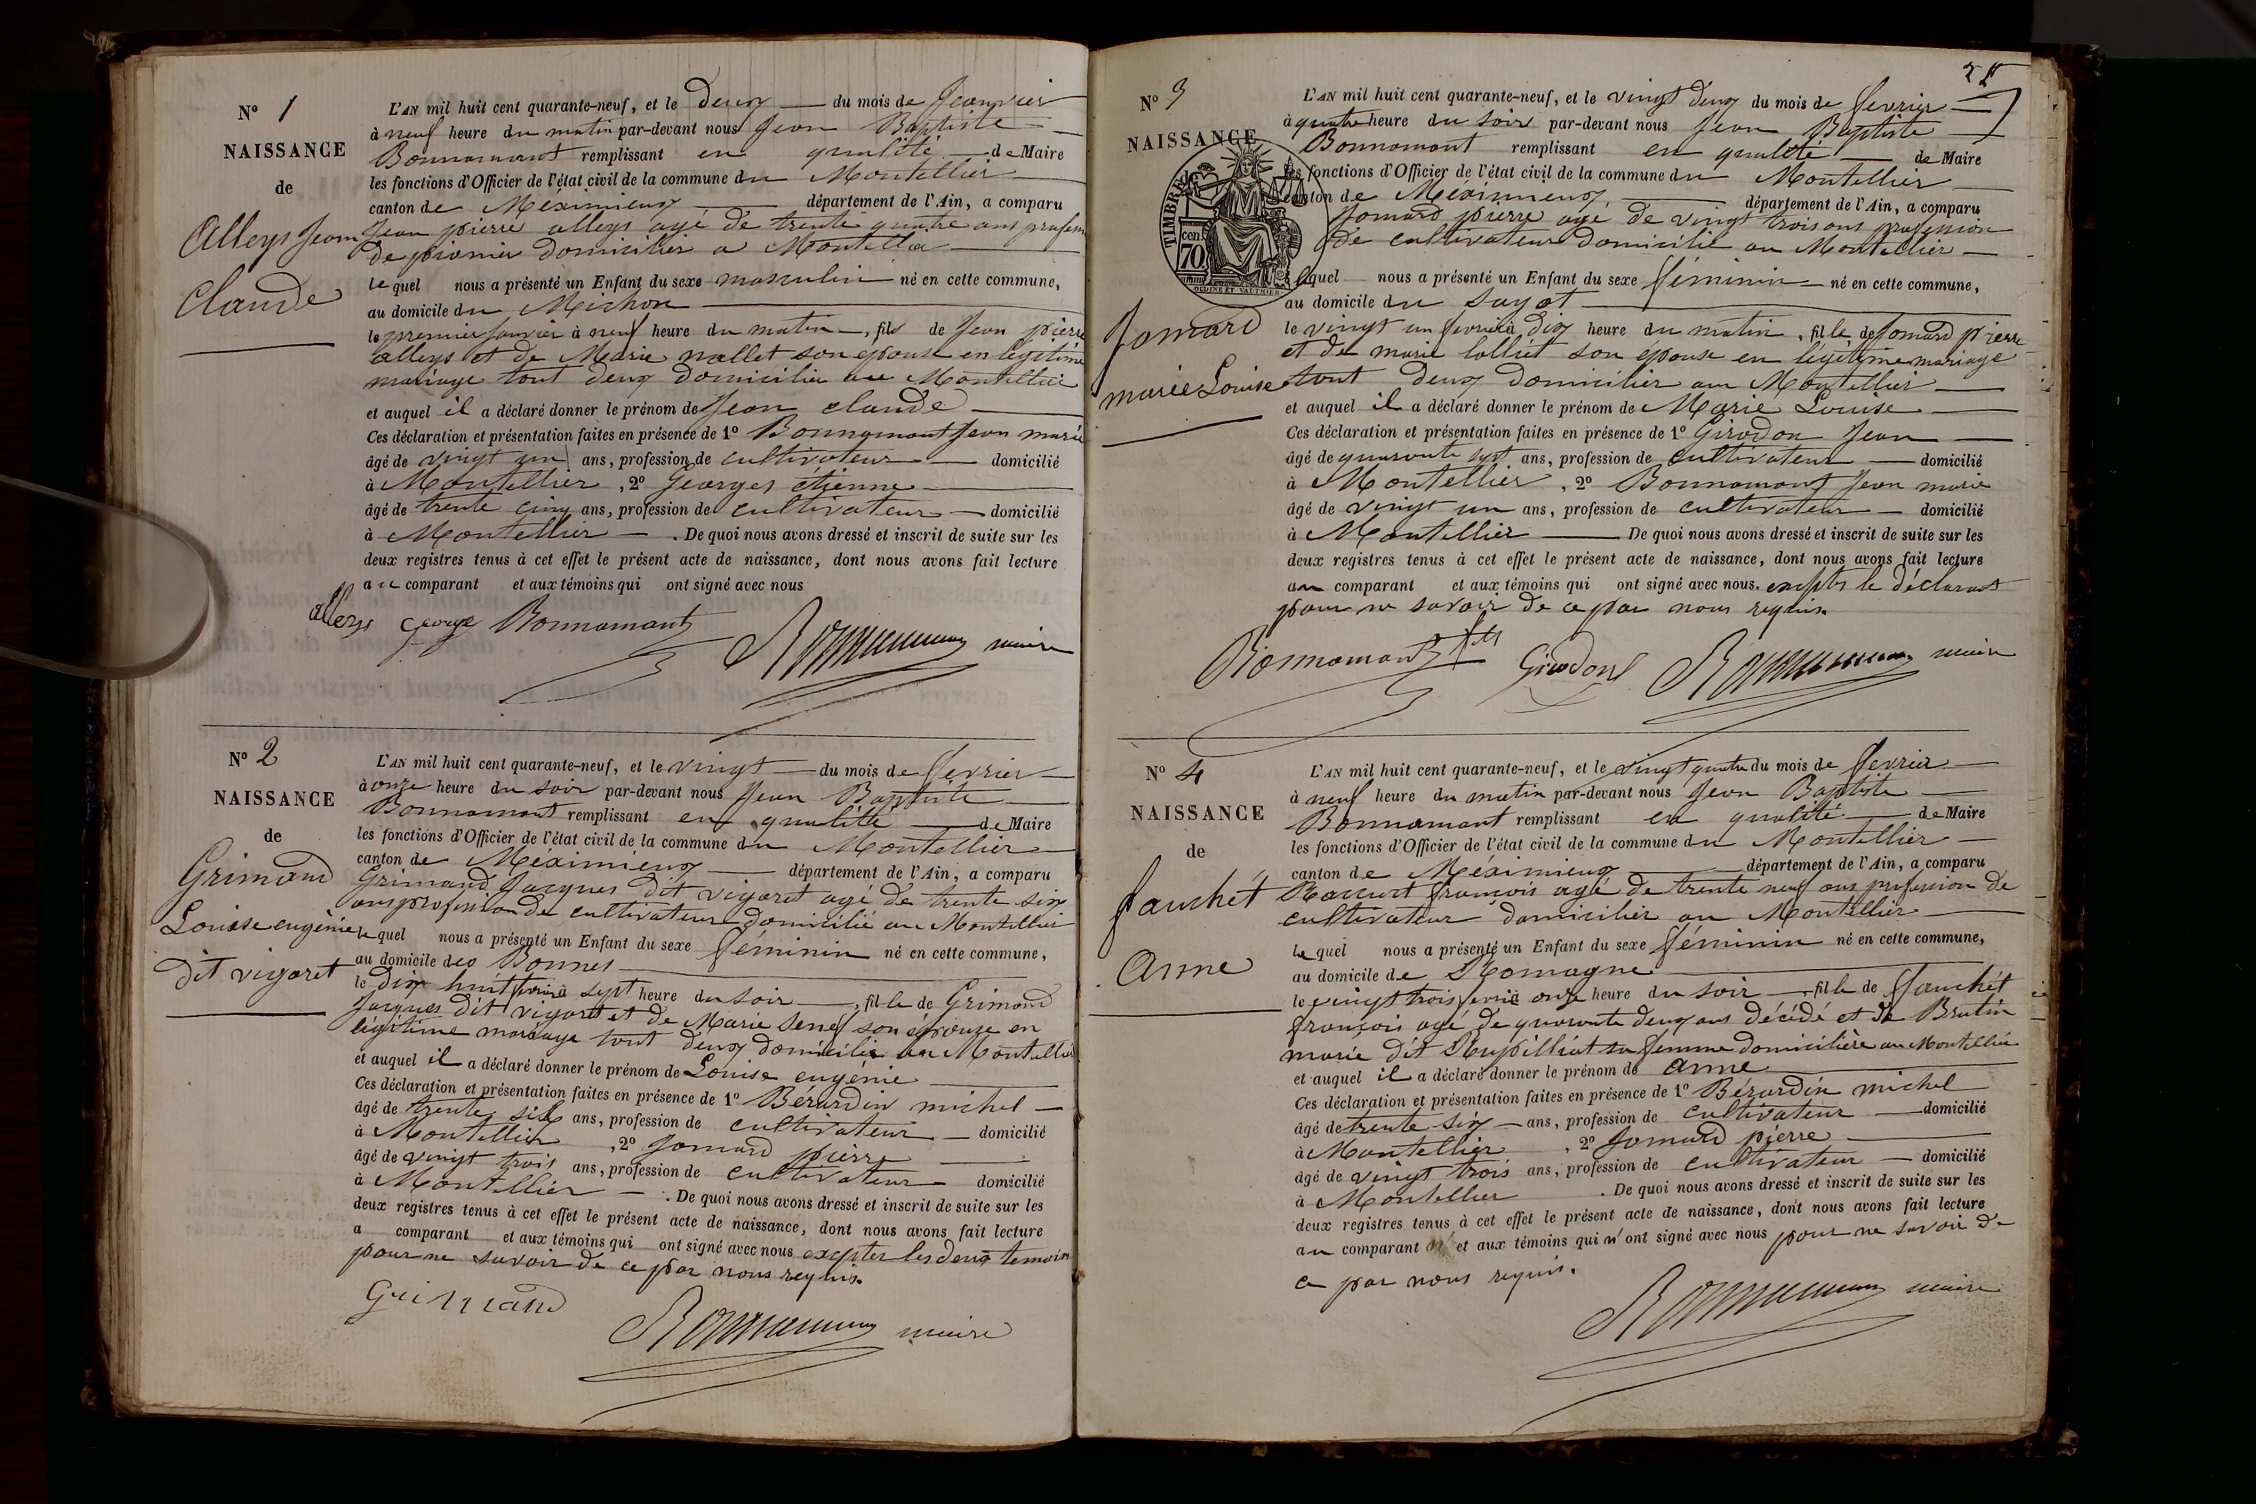 N° 1
NAISSANCE
de
Alleys Jean
Claude
L'AN mil huit cent quarante-neuf, et le deux du mois de Janvier
à neuf heure du matin par-devant nous Jean Baptiste
Bonnamant remplissant en qualité de Maire
les fonctions d'Officier de l'état civil de la commune du Montellier
canton de Méximieux département de l'Ain, a comparu
Jean pierre alleys agé de trente quatre ans profession
de domicilier a Montellier
lequel nous a présenté un Enfant du sexe masculin né en cette commune,
au domicile du Michon
le premier Janvier à neuf heure du matin, fils de Jean pierre
alleys et de Marie mallet son epouse en légitime
mariage tout deux domicilier au Montellier
et auquel il a déclaré donner le prénom de Jean claude
Ces déclaration et présentation faites en présence de 1° Bonnamant Jean marie
âgé de vingt un ans, profession de cultivateur domicilié
à Montellier, 2° Georges étienne
âgé de trente cinq ans, profession de cultivateur domicilié
à Montellier. De quoi nous avons dressé et inscrit de suite sur les
deux registres tenus à cet effet le présent acte de naissance, dont nous avons fait lecture
au comparant et aux témoins qui ont signé avec nous
alleys George Bonnamant maire
N° 2
NAISSANCE
de
Grimand
Louise eugénie
dit vigoret
L'AN mil huit cent quarante-neuf, et le vingt du mois de fevrier
à onze heure du soir par-devant nous Jean Baptiste
Bonnamant remplissant en qualité de Maire
les fonctions d'Officier de l'état civil de la commune du Montellier
canton de Méximieux département de l'Ain, a comparu
Grimand Jacques dit vigoret agé de trente six
ans profession de cultivateur domicilié au Montellier
lequel nous a présenté un Enfant du sexe féminin né en cette commune,
au domicile des Bonnes
le dix huit fevrier à sept heure du soir, fille de Grimand
Jacques dit vigoret et de Marie son épouze en
légitime mariage tout deux domicilié au Montellier
et auquel il a déclaré donner le prénom de Louise eugénie
Ces déclaration et présentation faites en présence de 1° Bérardin michel
âgé de trente six ans, profession de cultivateur domicilié
à Montellier, 2° Jomard pierre
âgé de vingt trois ans, profession de cultivateur domicilié
à Montellier. De quoi nous avons dressé et inscrit de suite sur les
deux registres tenus à cet effet le présent acte de naissance, dont nous avons fait lecture
a comparant et aux témoins qui ont signé avec nous excpter les deux temoin
pour ne savoir de ce par nous requis.
Grimand maire
N° 3
NAISSANCE
TIMBRE
cen.
70
Jomard
marie Louise
L'AN mil huit cent quarante-neuf, et le vingt deux du mois de fevrier
à quatre heure du soir par-devant nous Jean Baptiste
Bonnamant remplissant en qualité de Maire
les fonctions d'Officier de l'état civil de la commune du Montellier
canton de Méximieux département de l'Ain, a comparu
Jomard pierre agé de vingt trois ans profession
de cultivateur domicilié au Montellier
lequel nous a présenté un Enfant du sexe féminin né en cette commune,
au domicile du
le vingt un fevrier à dix heure du matin, fille de Jomard pierre
et de marie lolliet son épouse en légitime mariage
tout deux domicilier au Montellier
et auquel il a déclaré donner le prénom de Marie Louise
Ces déclaration et présentation faites en présence de 1° Girodon Jean
âgé de quaronte sept ans, profession de cultivateur domicilié
à Montellier, 2° Bonnamant Jean marie
âgé de vingt un ans, profession de cultivateur domicilié
à Montellier De quoi nous avons dressé et inscrit de suite sur les
deux registres tenus à cet effet le présent acte de naissance, dont nous avons fait lecture
au comparant et aux témoins qui ont signé avec nous. excpter le déclarant
pour ne savoir de ce par nous requis.
Bonnamant fils Girodon maire
N° 4
NAISSANCE
de
fauchét
Anne
L'AN mil huit cent quarante-neuf, et le vingt quatre du mois de fevrier
à neuf heure du matin par-devant nous Jean Baptiste
Bonnamant remplissant en qualité de Maire
les fonctions d'Officier de l'état civil de la commune du Montellier
canton de Méximieux département de l'Ain, a comparu
françois agé de trente neuf ans profession de
cultivateur domicilier au Montellier
lequel nous a présenté un Enfant du sexe féminin né en cette commune,
au domicile de Romagne
le vingt trois fevrier à onze heure du soir, fille de fauchét
françois agé de quaronte deux ans décédé et de Brutin
marie dit sa femme domicilière au Montellier
et auquel il a déclaré donner le prénom de anne
Ces déclaration et présentation faites en présence de 1° Bérardin michel
âgé de trente six ans, profession de cultivateur domicilié
à Montellier, 2° Jomard pierre
âgé de vingt trois ans, profession de cultivateur domicilié
à Montellier. De quoi nous avons dressé et inscrit de suite sur les
deux registres tenus à cet effet le présent acte de naissance, dont nous avons fait lecture
au comparant et aux témoins qui n'ont signé avec nous pour ne savoir de
ce par nous requis.
maire